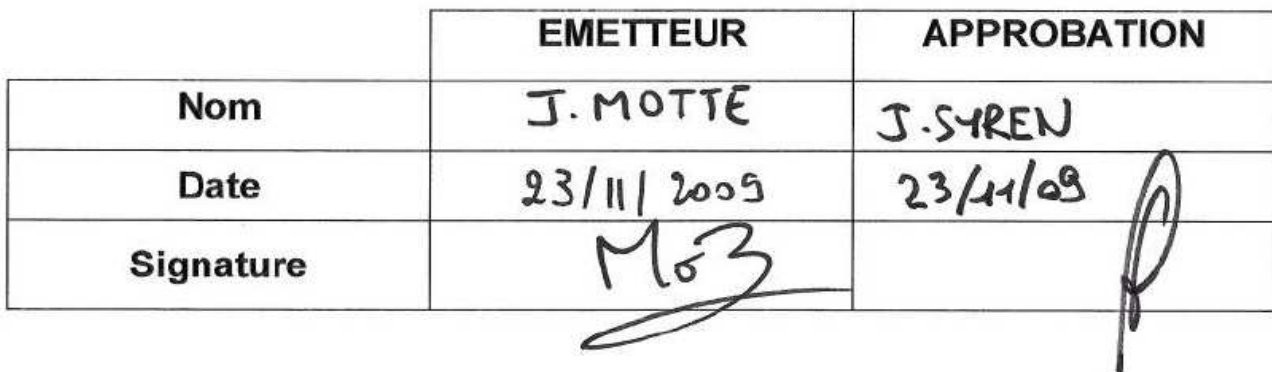 EMETTEUR APPROBATION
Nom J. MOTTE J. SYREN
Date 23/11/2009 23/11/09
Signature